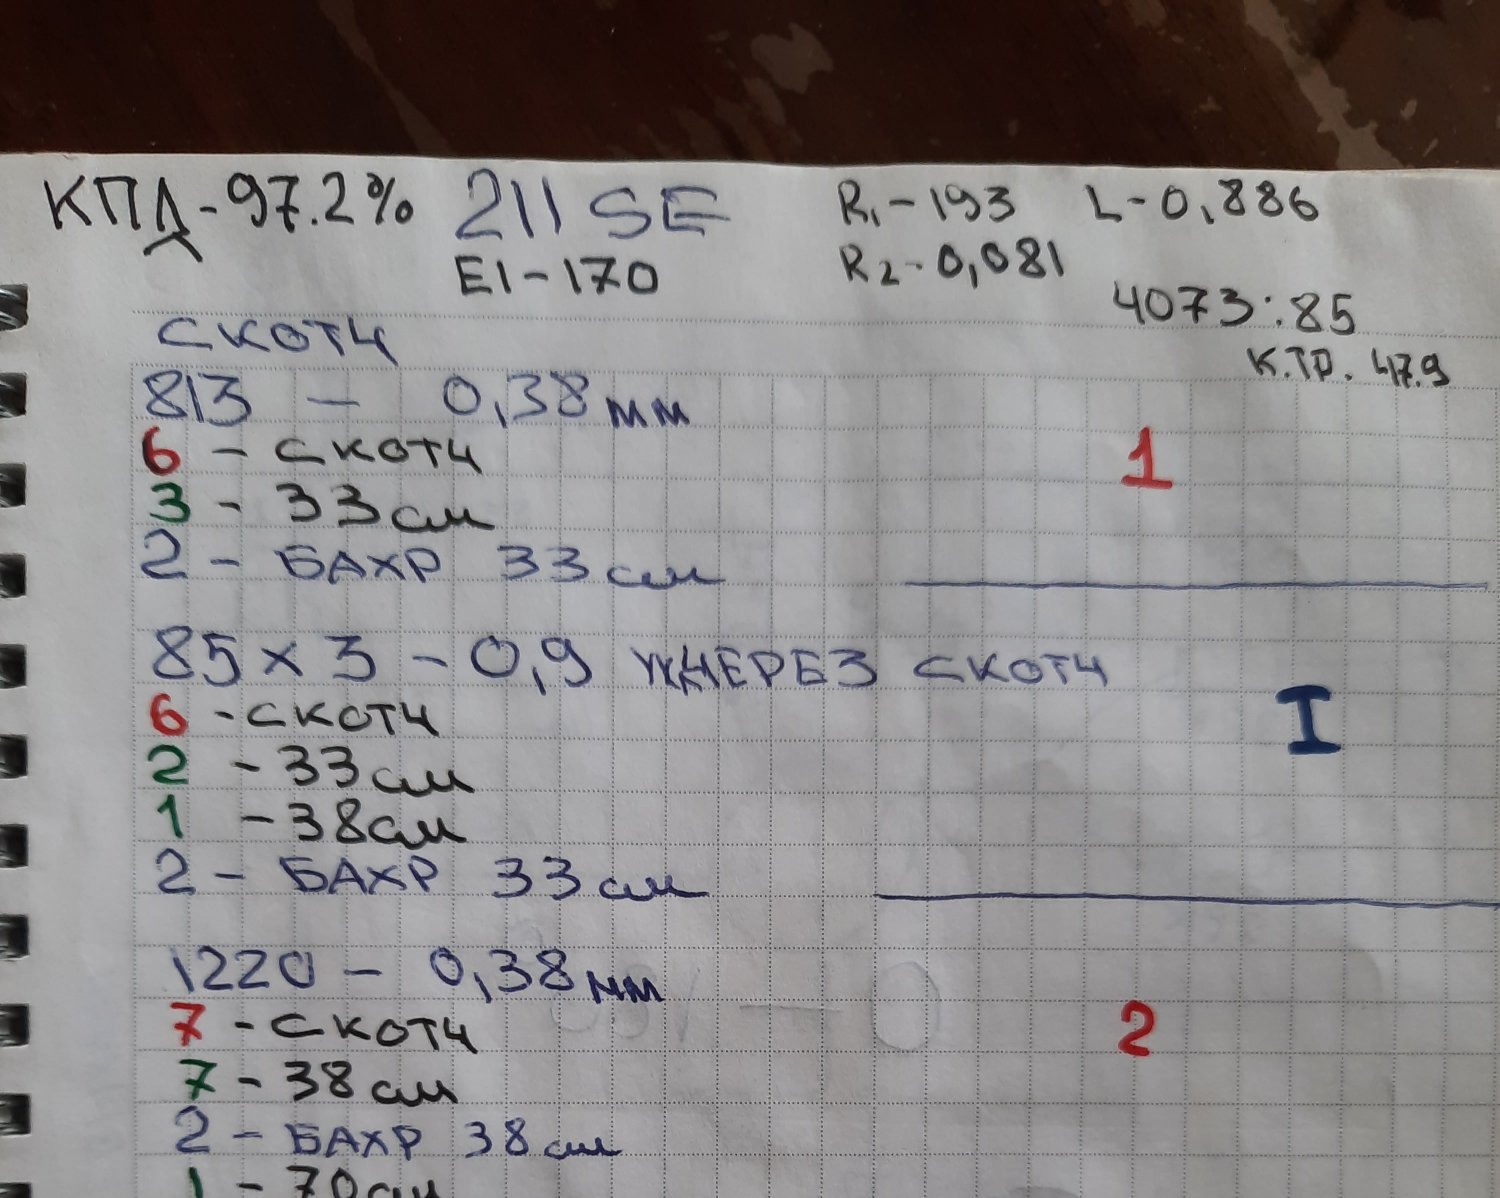 КПД-97.2% 211 SE R1-193 L-0,886
EI-170 R2-0,081
4073:85
СКОТЧ К.ТР. 47.9
813 - 0,38мм
6 - СКОТЧ 1
3 - 33см
2 - БАХР 33см
85 х 3 - 0,9 ЧЕРЕЗ СКОТЧ
6 - СКОТЧ I
2 - 33см
1 - 38см
2 - БАХР 33см
1220 - 0,38мм
7 - СКОТЧ 2
7 - 38см
2 - БАХР 38см
1 - 70см